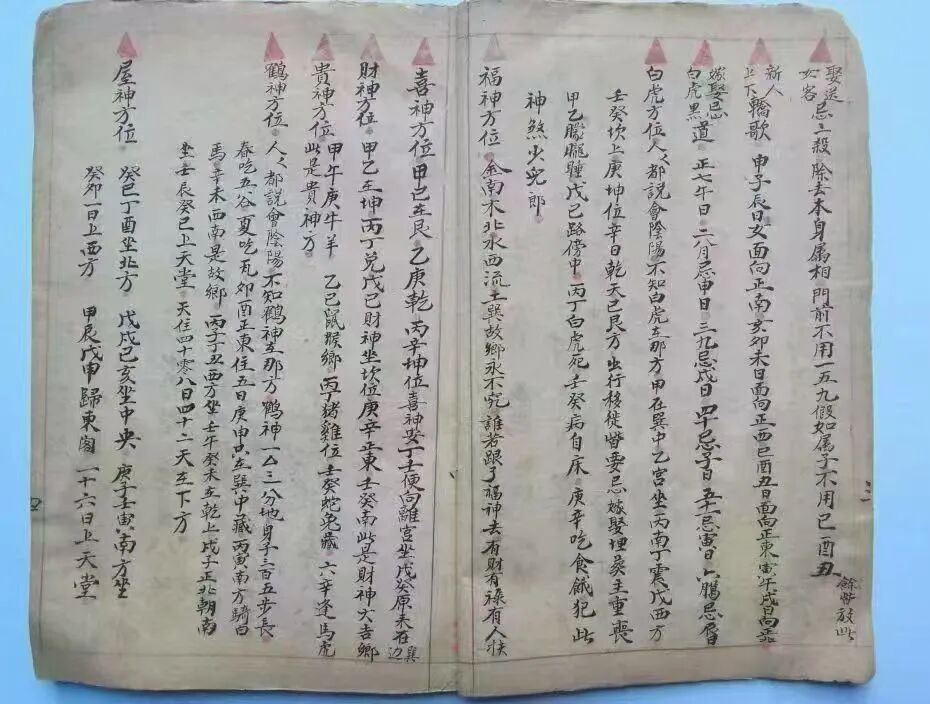 娶送忌三殺 除去本身属相 門前不用一五九假如属子不用巳酉丑 餘皆放此
女客
新人上下轎歌 申子辰日女面向正南亥卯未日面向正西巳酉丑日面向正東寅午戌日向正北
嫁娶忌白虎黑道 正七午日 二八月忌申日 三九忌戌日 四十忌子日 五十一忌寅日 六臘忌辰日
白虎方位人人都說會陰陽不知白虎在那方甲在巽中乙宮坐丙南丁震戊西方
壬癸坎上庚坤位辛日乾天己艮方出行移徙皆要忌嫁娶埋葬主重喪
甲乙朦朧腫戊己路傍中 丙丁白虎死壬癸病自床 庚辛吃食餓犯此
神煞少兒郎
福神方位 金南木北水西流土巽故鄉永不究 誰若跟了福神去有財有祿有人扶
喜神方位甲己在艮乙庚乾丙辛坤位喜神安丁壬便向離宮坐戊癸原来在巽边
財神方位 甲乙在坤丙丁兌戊己財神坐坎位庚辛正東壬癸南此是財神大吉鄉
貴神方位 甲午庚牛羊 乙己鼠猴鄉 丙丁猪雞位 壬癸蛇兔藏 六辛逢馬虎
此是貴神方
鶴神方位 人人都說會陰陽不知鶴神在那方 鶴神一丈三分地身子三百五步長
春吃五谷夏吃 卯酉正東住五日庚申 在巽中藏丙寅南方騎白
馬 辛未西南是故鄉 丙子丁丑西方坐 壬午癸未在乾上 戊子正北朝南
坐 壬辰癸巳上天堂 天住四十零八日四十二天在下方
屋神方位 癸巳丁酉坐北方 戊戌己亥坐中央 庚子壬寅南方坐
癸卯一日上西方 甲辰戊申歸東 一十六日上天堂